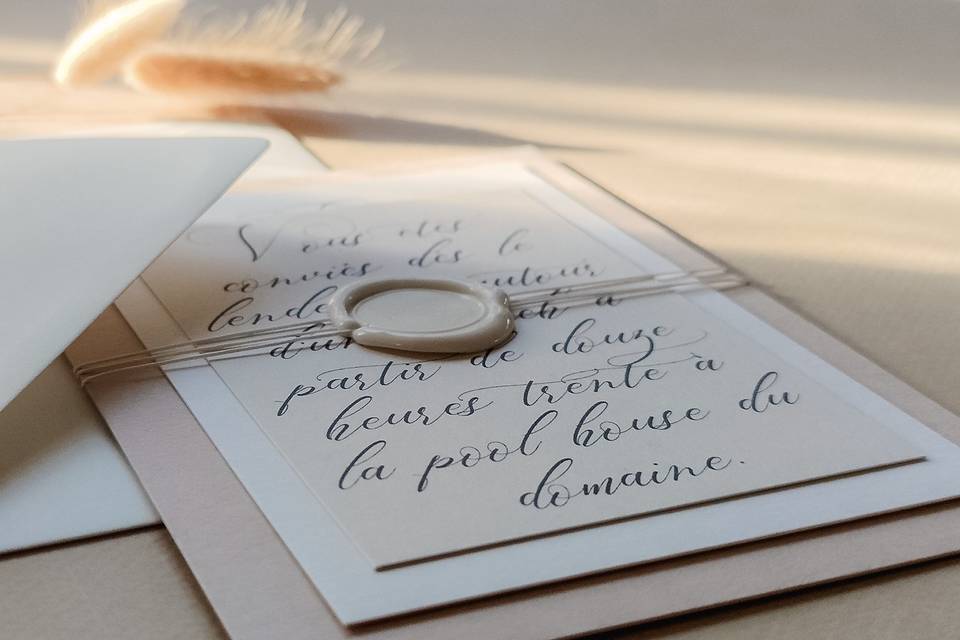 Vous êtes
conviés dès le
lende autour
d'un à
partir de douze
heures trente à
la pool house du
domaine.